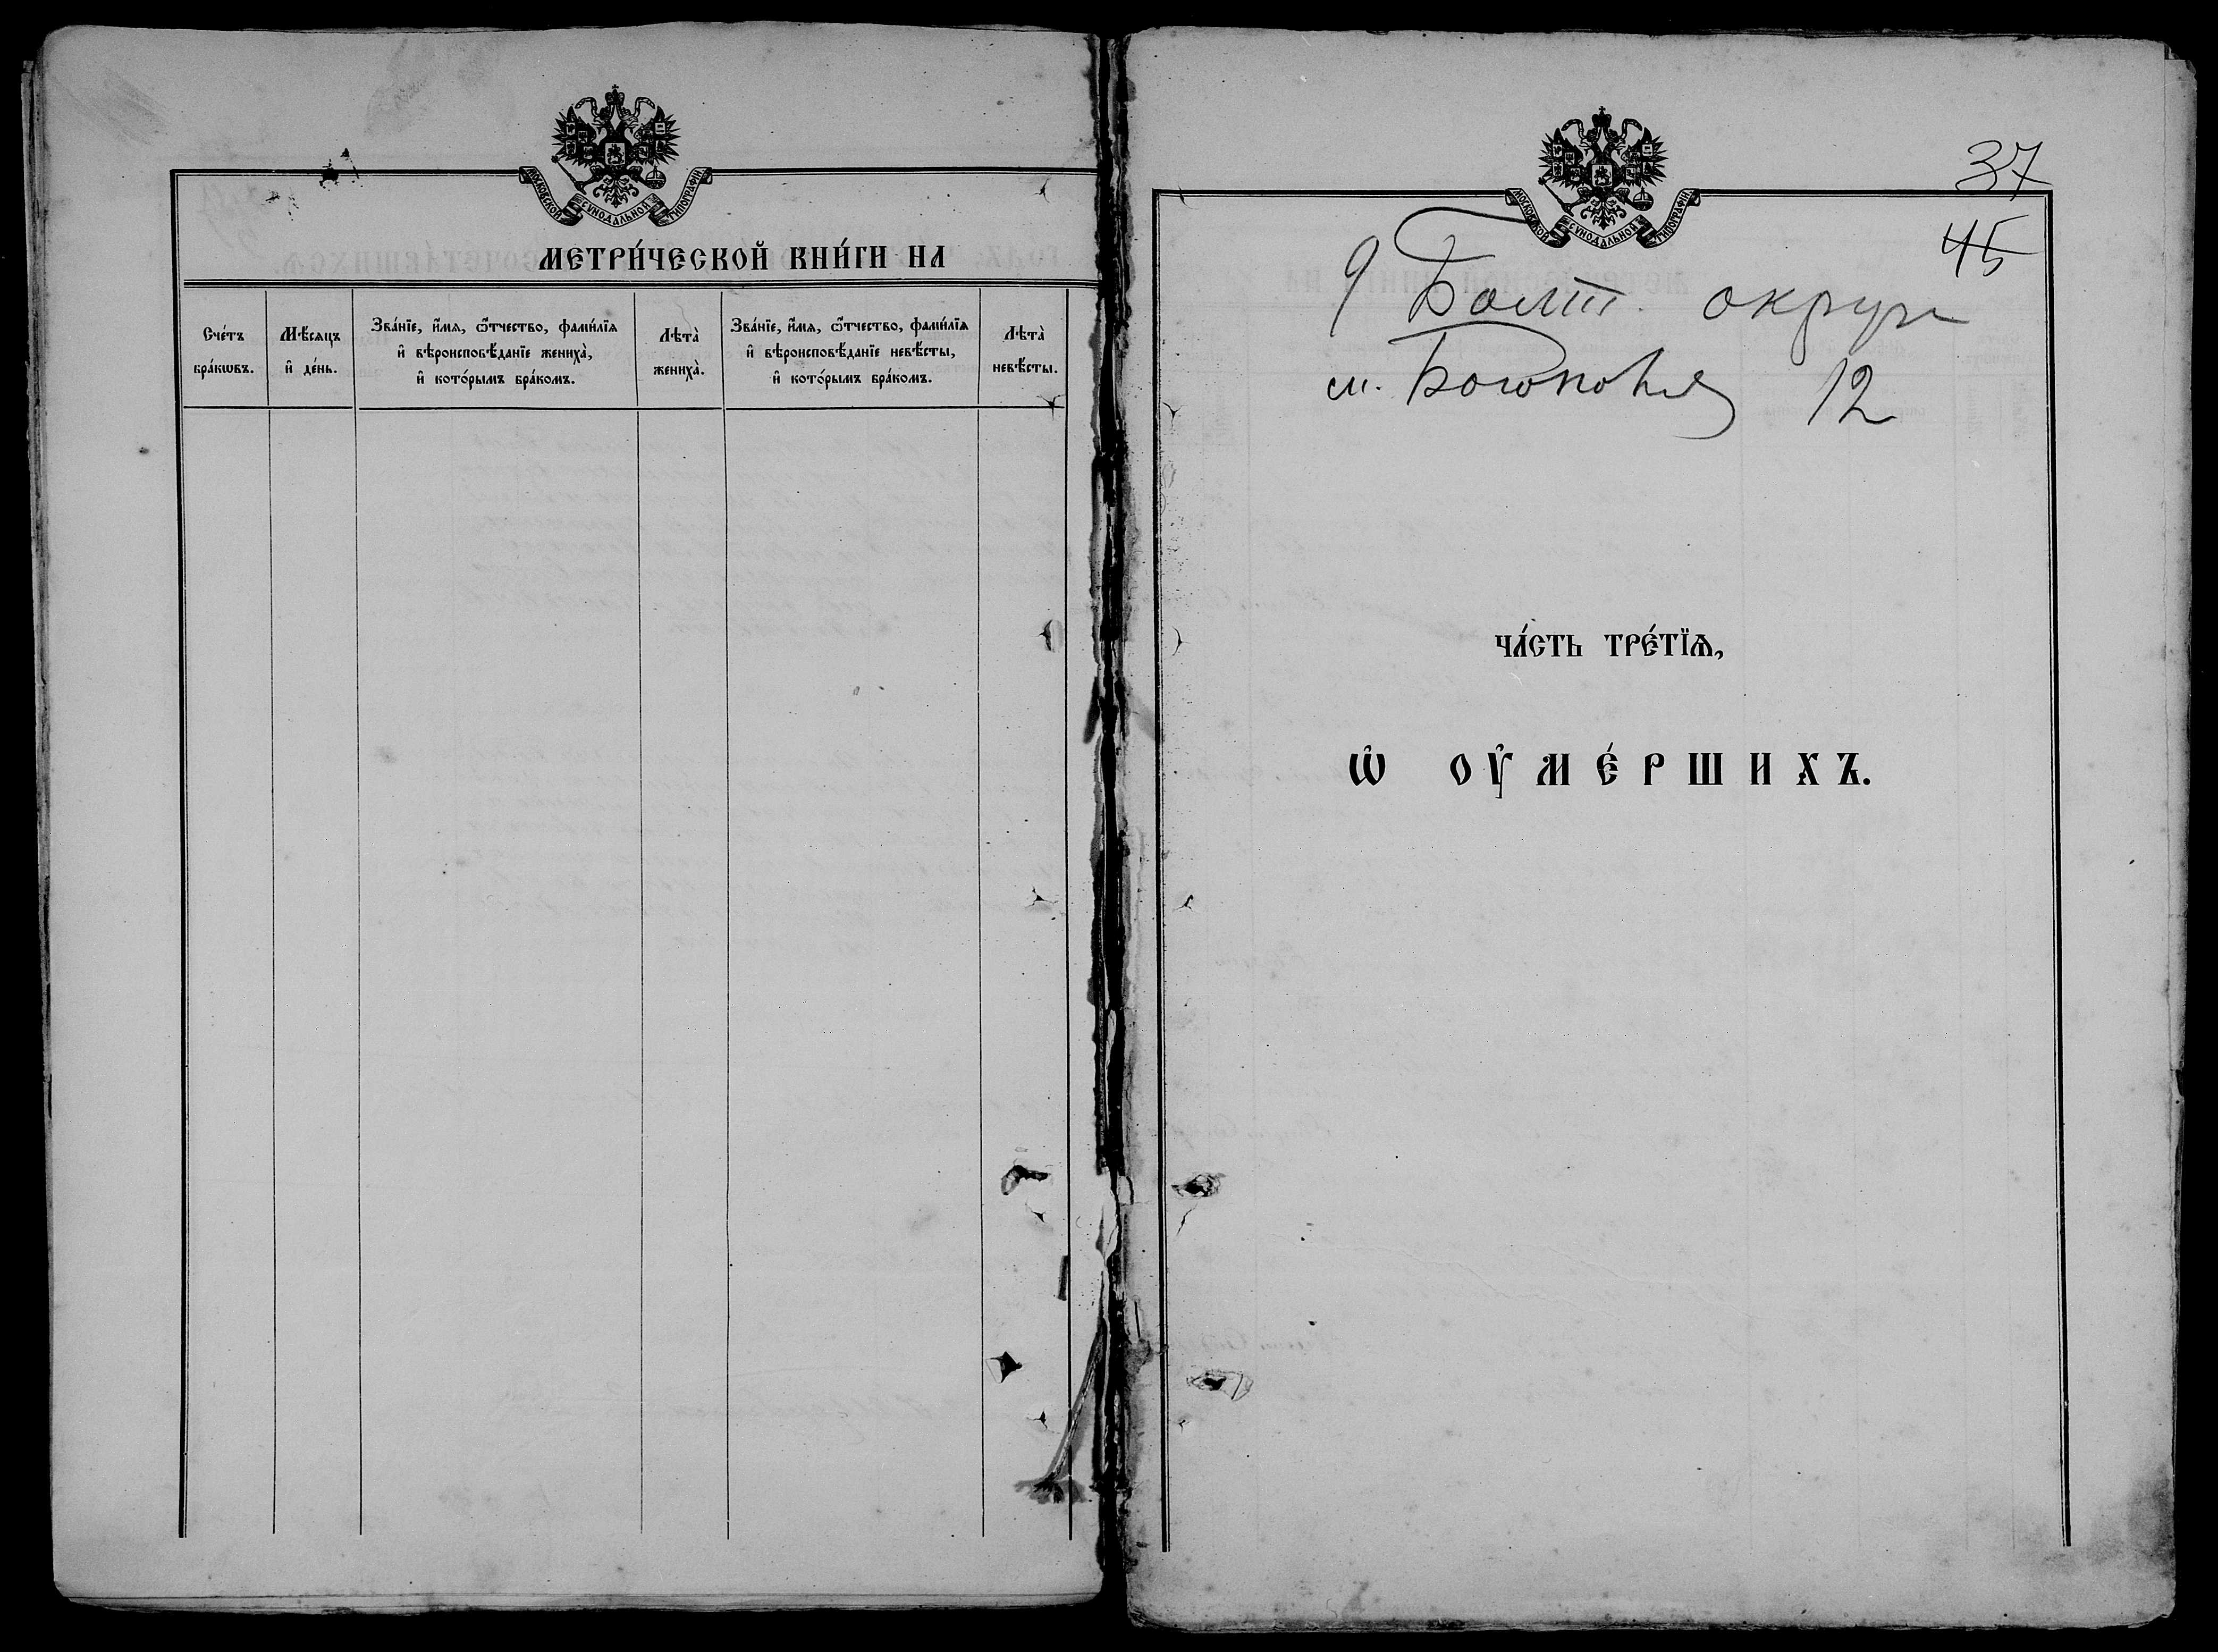 МОСКОВСКОЙ СѴНОДАЛЬНОЙ ТИПОГРАФІИ
МЕТРИ́ЧЕСКОЙ КНИ́ГИ НА
Сче́тъ бра́кѡвъ.
Мѣ́сяцъ и҆ де́нь.
Зва́нїе, и҆́мѧ, ѻ҆́тчество, фами́лїѧ
и҆ вѣроисповѣ́данїе жениха̀,
и҆ кото́рымъ бра́комъ.
Лѣта̀ жениха̀.
Зва́нїе, и҆́мѧ, ѻ҆́тчество, фами́лїѧ
и҆ вѣроисповѣ́данїе невѣ́сты,
и҆ кото́рымъ бра́комъ.
Лѣта̀ невѣ́сты.
МОСКОВСКОЙ СѴНОДАЛЬНОЙ ТИПОГРАФІИ
37
45
9 Балт. округа
12
ЧА́СТЬ ТРЕ́ТЇѦ,
Ѡ҆ ОУ҆МЕ́РШИХЪ.